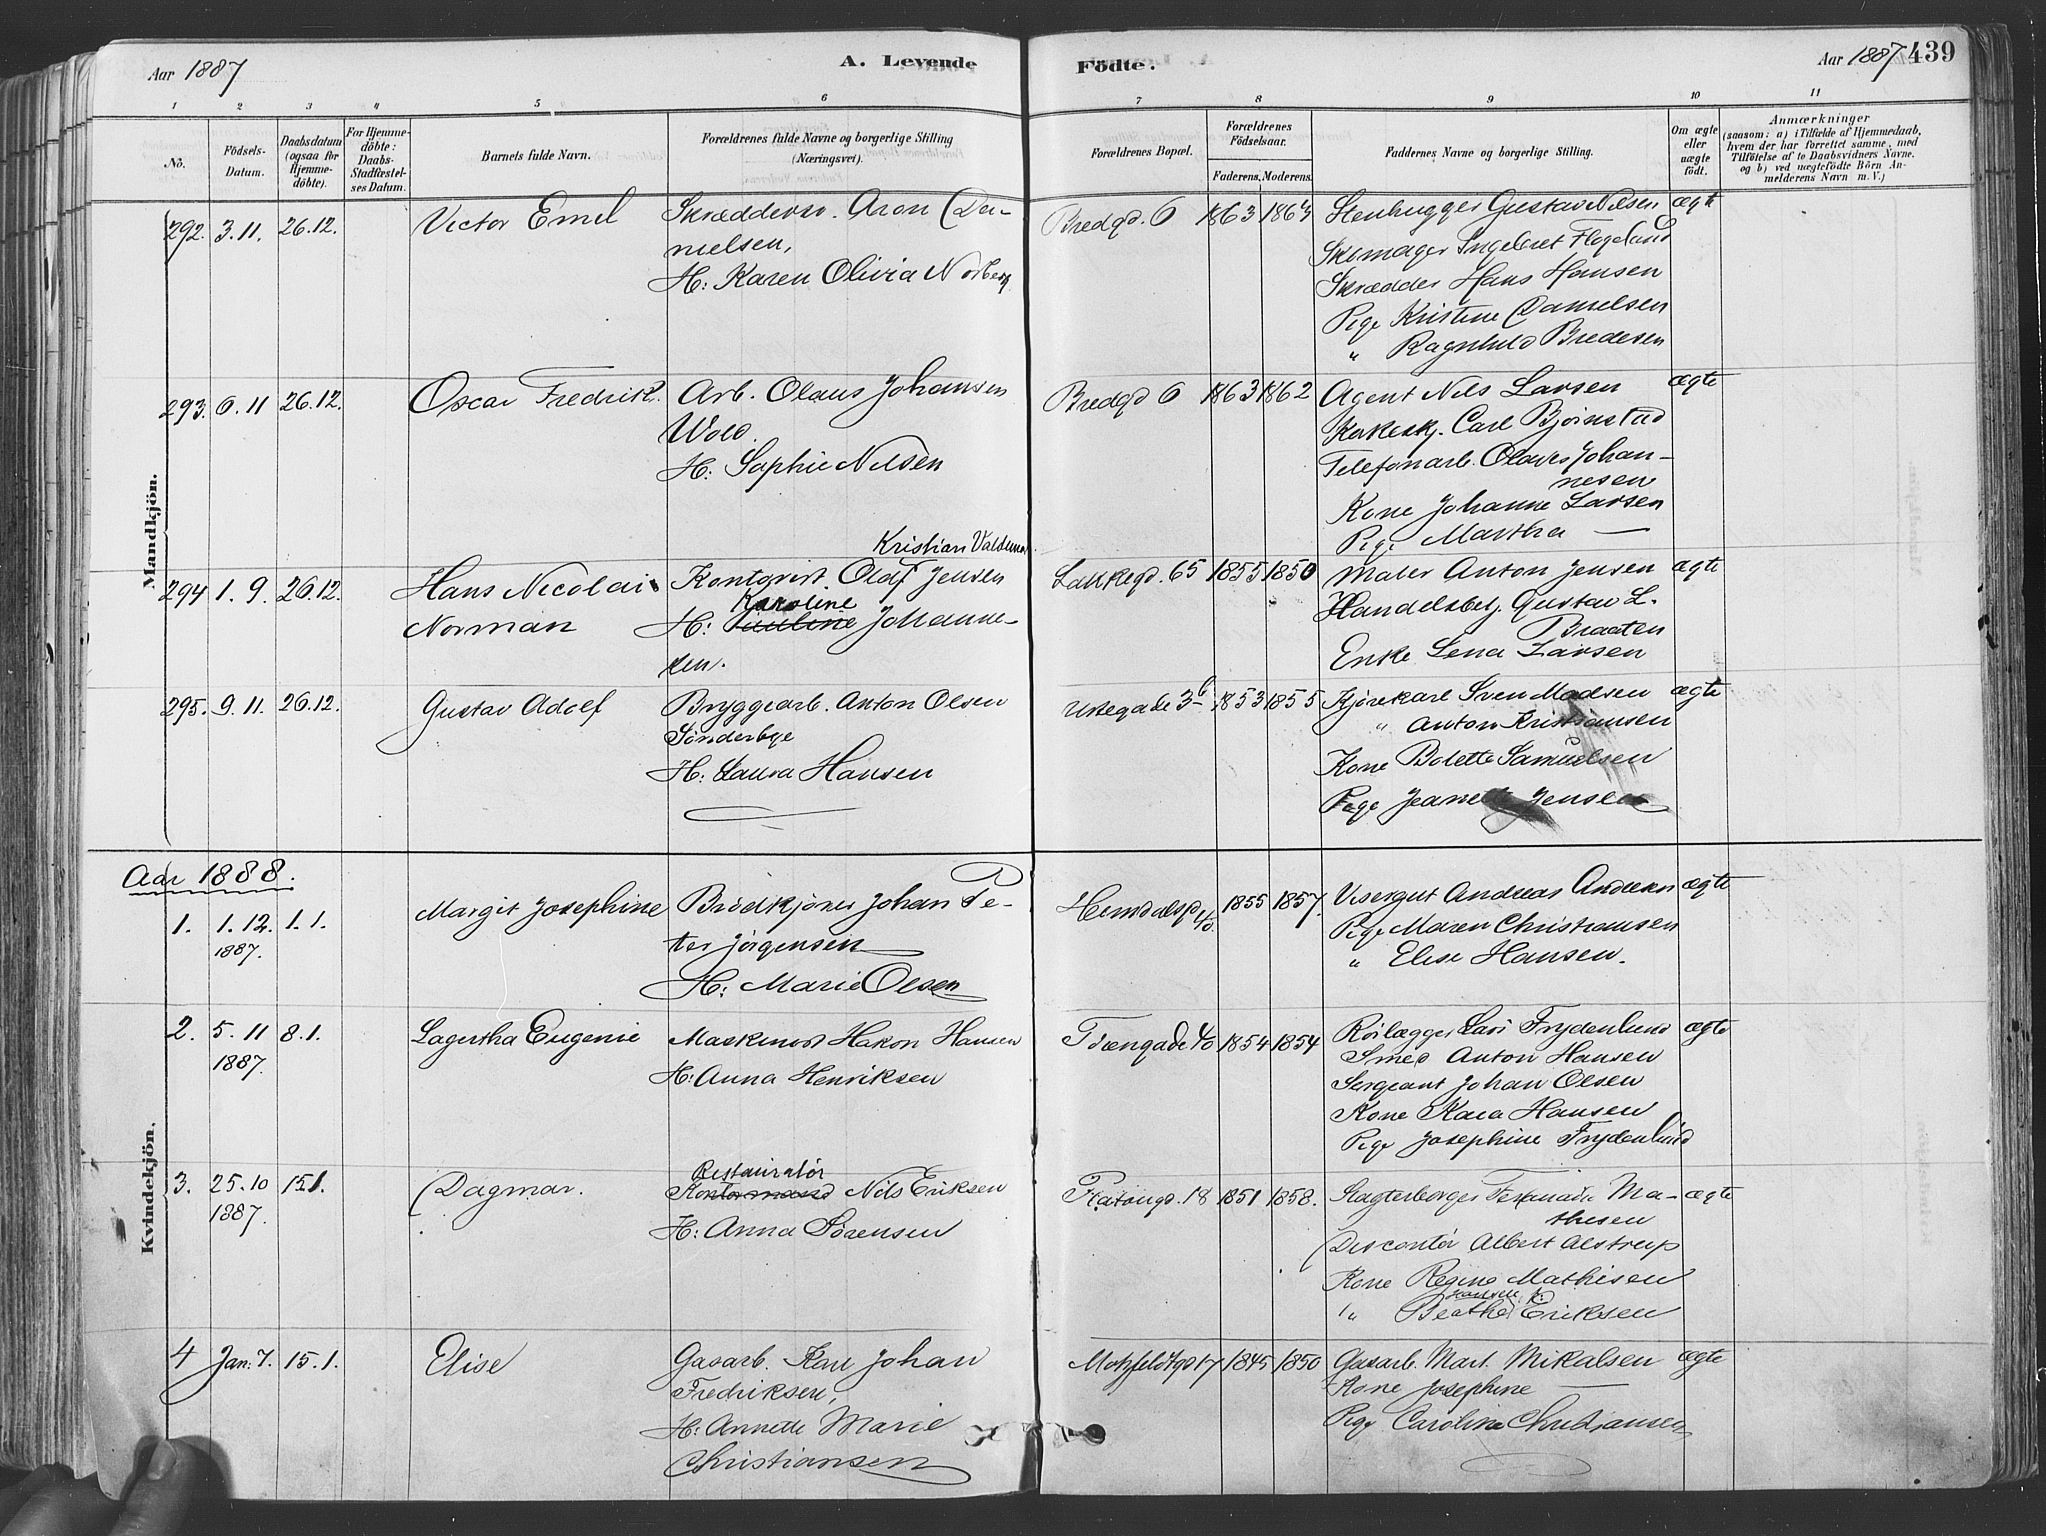 Aar 1887
A. Levende
Födte.
Aar 1887
439
1 2 3 4 5 6 7 8 9 10 11
No.
Födsels-Datum.
Daabsdatum (ogsaa for Hjemme-döbte).
For Hjemme-döbte: Daabs-Stadfæstel-ses Datum.
Barnets fulde Navn.
Forældrenes fulde Navne og borgerlige Stilling (Næringsvei).
Forældrenes Bopæl.
Forældrenes Födselsaar.
Faderens. Moderens.
Faddernes Navne og borgerlige Stilling.
Om ægte eller uægte födt.
Anmærkninger
(saasom: a) i Tilfælde af Hjemmedaab, hvem der har forrettet samme, med Tilföielse af to Daabsvidners Navne. og b) ved uægtefödte Börn An-melderens Navn m. V.)
Mandkjön.
292. 3.11. 26.12. Victor Emil
Skræddersv. Aron Da-
nielsen,
H: Karen Olivia Norberg
Bredgd. 6 1863 1863
Stenhugger Gustav Nilsen ægte
Skomager Ingebret Flogeland
Skrædder Hans Hansen
Pige Kristine Danielsen
" Ragnhild Bredesen
293. 6.11 26.12. Oscar Fredrik.
Arb. Olaus Johansen
Wold.
H: Sophie Nilsen
Bredgd 6 1863 1862
Agent Nils Larsen ægte
Kirkesk. Carl Bjørnstad
Telefonarb. Olaves Johan-
nesen
Kone Johanne Larsen
Pige Martha —
294 1.9. 26.12. Hans Nicolai
Norman
Kristian Valdemar
Kontorist. Olaf Jensen
Karoline
H: Pauline Johanne-
sen.
Lakkegd. 65 1855 1850
Maler Anton Jensen ægte
Handelsbetj. Gustav L.
Braaten
Enke Lena Larsen
295. 9.11. 26.12. Gustav Adolf
Bryggearb. Anton Olsen
Sønderbye
H: Laura Hansen
Urtegade 3 b 1853 1855
Kjørekarl Sven Madsen ægte
" Anton Kristiansen
Kone Bolette Samuelsen
Pige Jeanette Jensen
Aar 1888.
Kvindekjön.
1. 1.12. 1.1. Margit Josephine
1887.
Brødkjører Johan Pe-
ter Jørgensen
H: Marie Olsen
Heimdalsgd 1855 1857.
Visergut Andreas Andersen ægte
Pige Maren Christiansen
" Elise Hansen.
2. 5.11 8.1. Lagertha Eugenie
1887.
Maskinist Hakon Hansen
H: Anna Henriksen
Tøiengade 40 1854 1854
Rørlægger Lars Frydenlund ægte
Smed Anton Hansen
Sergeant Johan Olsen
Kone Kaia Hansen
Pige Josephine Frydenlund
3. 25.10 15.1. Dagmar.
1887.
Restauratør
Kontormand Nils Eriksen
H: Anna Sørensen
Platougd. 18 1851 1858.
Slagterborger Ferdinand Ma- ægte
thesen
Discontør Albert Alstrup
Kone Regine Mathisen
" Beathe Eriksen
4 Jan: 7. 15.1. Elise
Gasarb. Karl Johan
Fredriksen,
H: Annette Marie
Christiansen
Motzfeldtgd 17 1845 1850
Gasarb. Mart. Mikalsen ægte
Kone Josephine —
Pige Caroline Christiansen